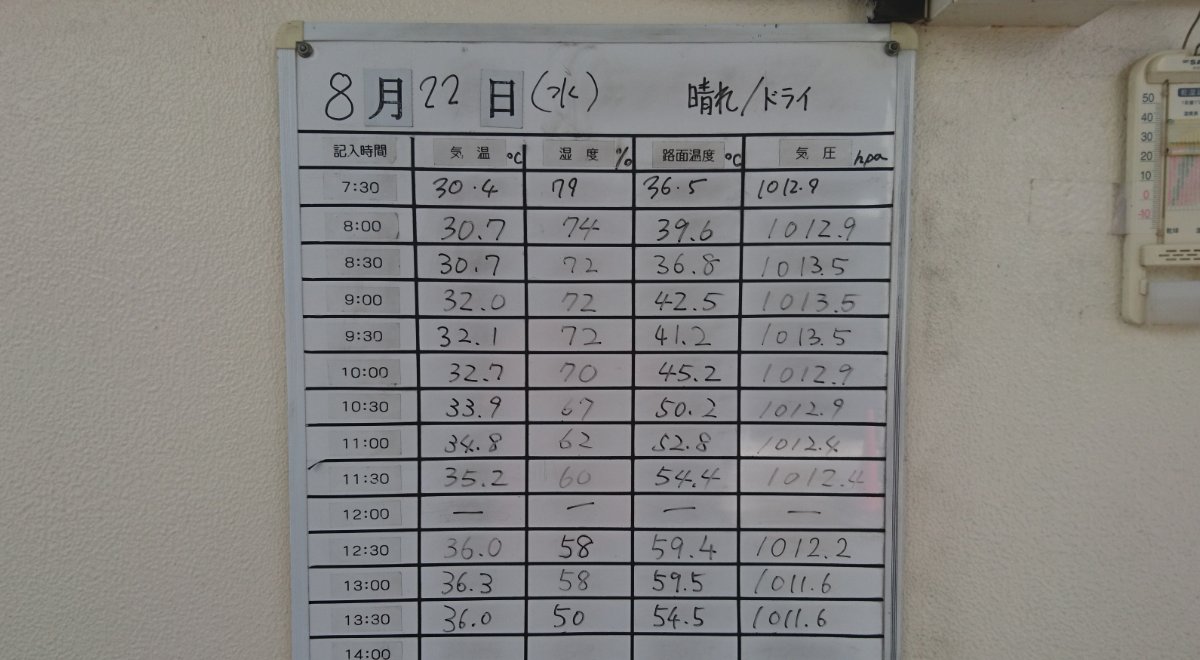 8月22日(水) 晴れ/ドライ
記入時間 気温 ℃ 湿度 % 路面温度 ℃ 気圧 hpa
7:30 30.4 79 36.5 1012.9
8:00 30.7 74 39.6 1012.9
8:30 30.7 72 36.8 1013.5
9:00 32.0 72 42.5 1013.5
9:30 32.1 72 41.2 1013.5
10:00 32.7 70 45.2 1012.9
10:30 33.9 67 50.2 1012.9
11:00 34.8 62 52.8 1012.4
11:30 35.2 60 54.4 1012.4
12:00 — — — —
12:30 36.0 58 59.4 1012.2
13:00 36.3 58 59.5 1011.6
13:30 36.0 50 54.5 1011.6
14:00
50
40
30
20
10
0
-10